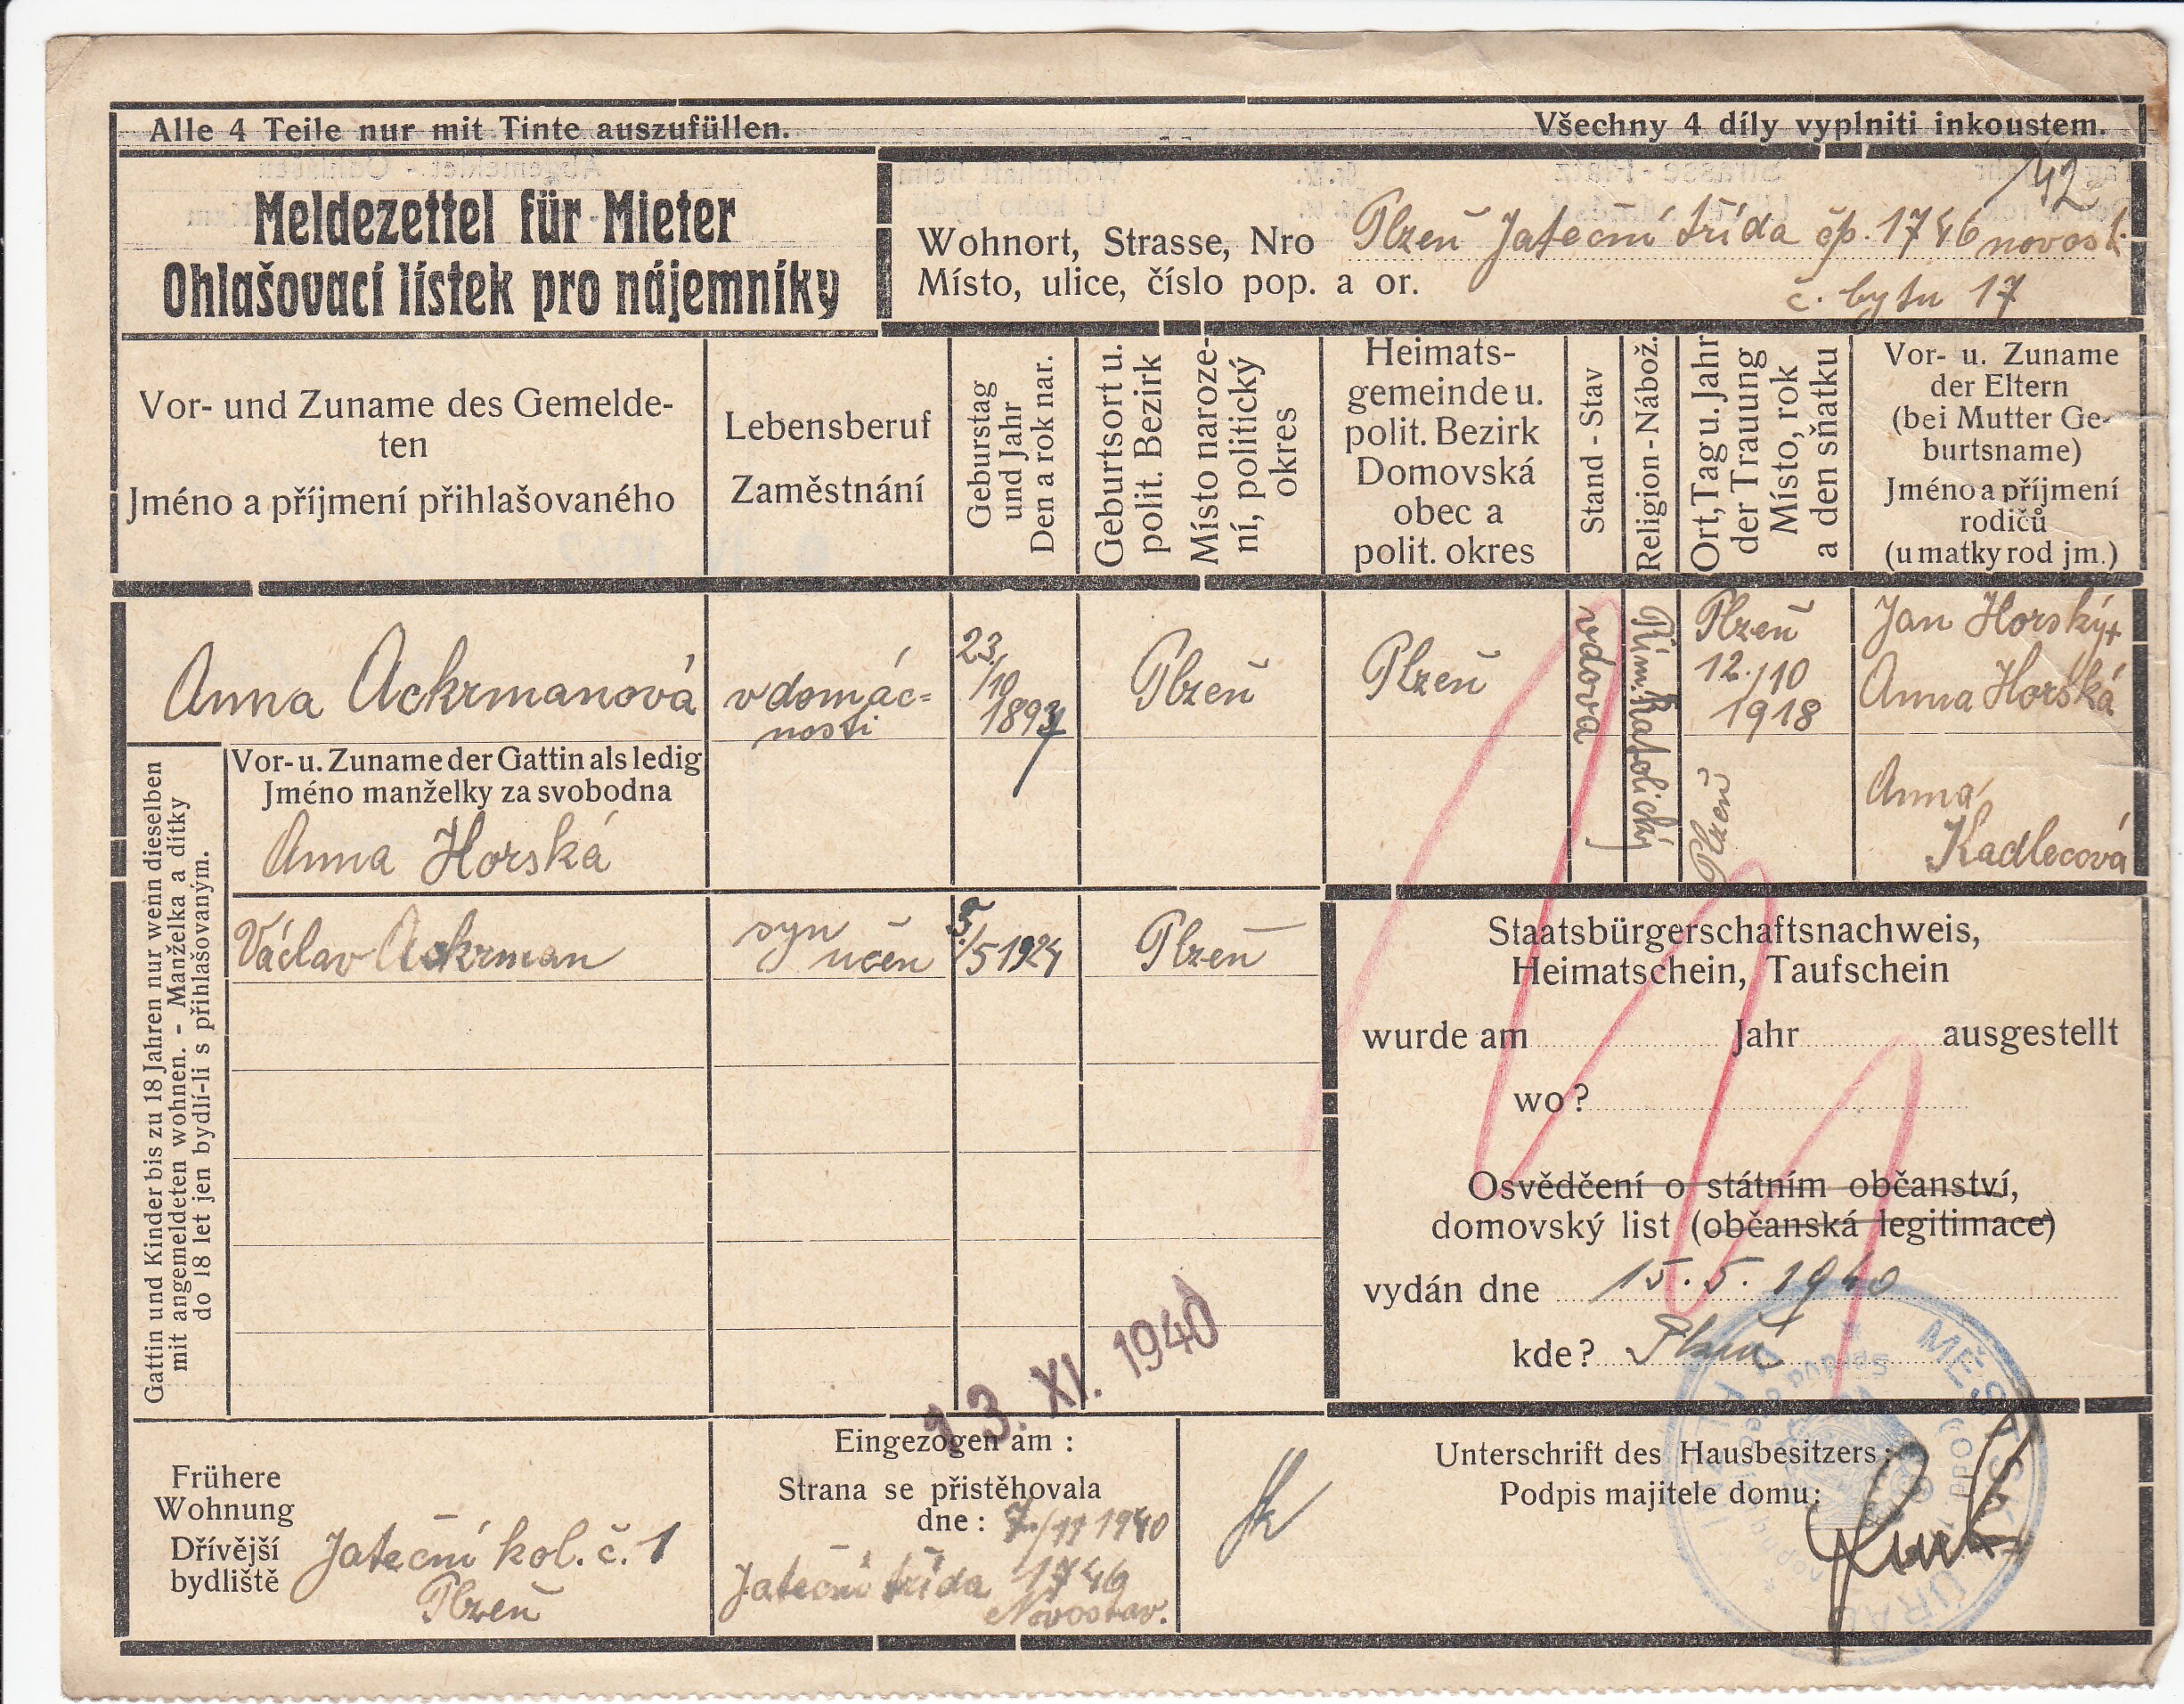 Alle 4 Teile nur mit Tinte auszufüllen.
Všechny 4 díly vyplniti inkoustem.
Meldezettel für Mieter
Ohlašovací lístek pro nájemníky
42
Wohnort, Strasse, Nro
Místo, ulice, číslo pop. a or.
Plzeň Jateční třída čp. 1746 novost.
č. bytu 17
Vor- und Zuname des Gemelde-
ten
Jméno a příjmení přihlašovaného
Lebensberuf
Zaměstnání
Geburstag
und Jahr
Den a rok nar.
Geburtsort u.
polit. Bezirk
Místo naroze-
ní, politický
okres
Heimats-
gemeinde u.
polit. Bezirk
Domovská
obec a
polit. okres
Stand - Stav
Religion - Nábož.
Ort, Tag u. Jahr
der Trauung
Místo, rok
a den sňatku
Vor- u. Zuname
der Eltern
(bei Mutter Ge-
burtsname)
Jméno a příjmení
rodičů
(u matky rod jm.)
Anna Ackrmanová
v domác-
nosti
23./
/10
1893
Plzeň
Plzeň
vdova
Řím. Katolický
Plzeň
12./10
1918
Plzeň
Jan Horský +
Anna Horská
Anna
Kadlecová
Vor- u. Zuname der Gattin als ledig
Jméno manželky za svobodna
Anna Horská
Gattin und Kinder bis zu 18 Jahren nur wenn dieselben
mit angemeldeten wohnen. - Manželka a dítky
do 18 let jen bydlí-li s přihlašovaným.
Václav Ackrman
syn
učen
5./5 1924
Plzeň
Staatsbürgerschaftsnachweis,
Heimatschein, Taufschein
wurde am Jahr ausgestellt
wo?
Osvědčení o státním občanství,
domovský list (občanská legitimace)
vydán dne 15. 5. 1940
kde? Plzeň
13. XI. 1940
Frühere
Wohnung
Dřívější
bydliště
Jateční kol. č. 1
Plzeň
Eingezogen am :
Strana se přistěhovala
dne : 7./11 1940
Jateční třída 1746
Novostav.
Unterschrift des Hausbesitzers:
Podpis majitele domu:
MĚSTSKÝ ÚŘAD